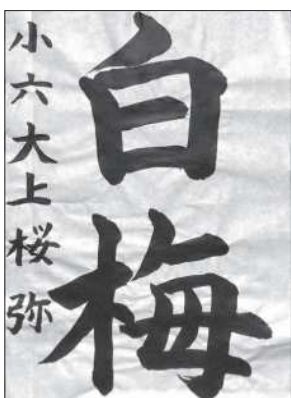 白梅
小六大上桜弥